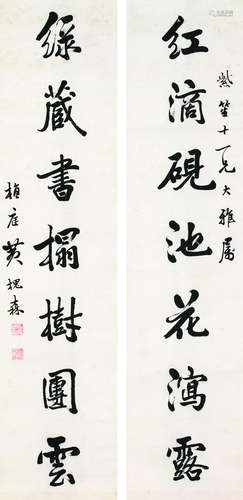 紫笙十一兄大雅屬
紅滴硯池花瀉露
綠藏書榻樹團雲
植庭黃槐森